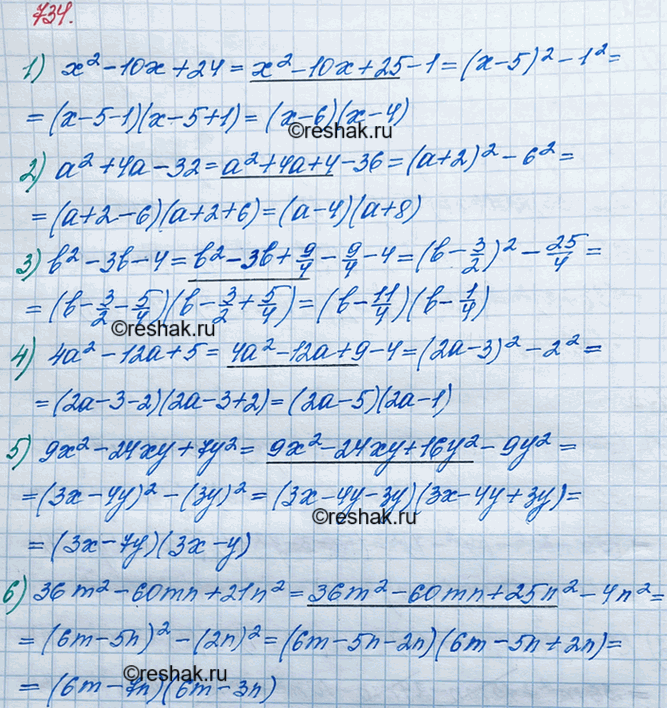 734.
1) x² - 10x + 24 = x² - 10x + 25 - 1 = (x-5)² - 1² =
= (x-5-1)(x-5+1) = (x-6)(x-4)
©reshak.ru
2) a² + 4a - 32 = a² + 4a + 4 - 36 = (a+2)² - 6² =
= (a+2-6)(a+2+6) = (a-4)(a+8)
3) b² - 3b - 4 = b² - 3b + 9/4 - 9/4 - 4 = (b - 3/2)² - 25/4 =
= (b - 3/2 - 5/4)(b - 3/2 + 5/4) = (b - 11/4)(b - 1/4)
©reshak.ru
4) 4a² - 12a + 5 = 4a² - 12a + 9 - 4 = (2a-3)² - 2² =
= (2a-3-2)(2a-3+2) = (2a-5)(2a-1)
5) 9x² - 24xy + 7y² = 9x² - 24xy + 16y² - 9y² =
= (3x-4y)² - (3y)² = (3x-4y-3y)(3x-4y+3y) =
©reshak.ru
= (3x-7y)(3x-y)
6) 36m² - 60mn + 21n² = 36m² - 60mn + 25n² - 4n² =
= (6m-5n)² - (2n)² = (6m-5n-2n)(6m-5n+2n) =
= (6m-7n)(6m-3n)
©reshak.ru